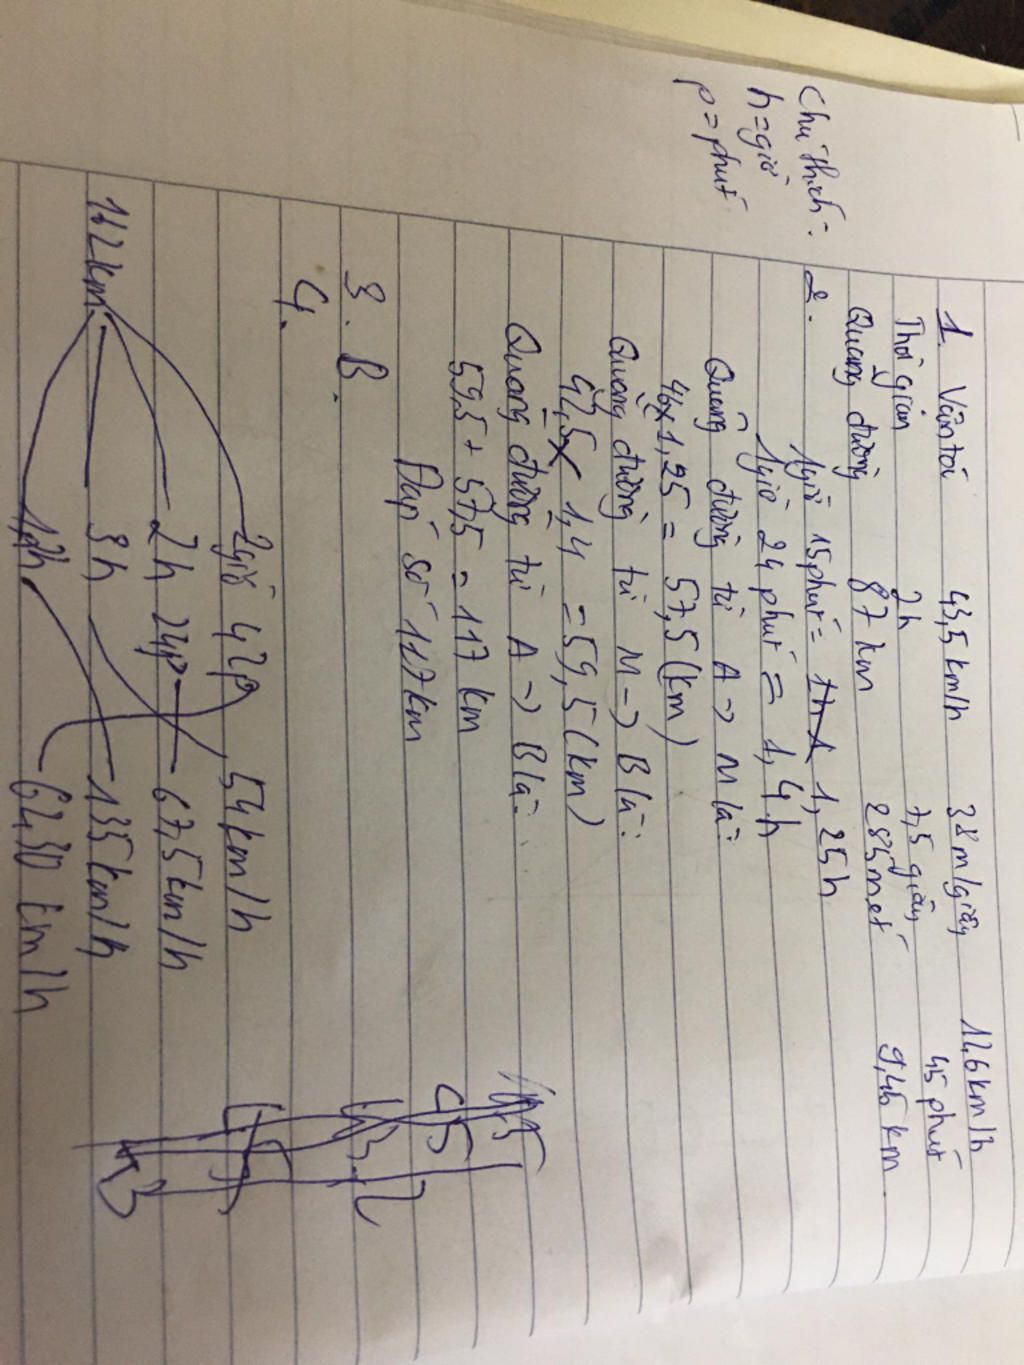 Chú thích:
h = giờ
p = phút
1. Vận tốc 43,5 km/h 38 m/giây 12,6 km/h
Thời gian 2h 7,5 giây 45 phút
Quãng đường 87 km 285 mét 9,45 km
2.
1 giờ 15 phút = 1,25h
1 giờ 24 phút = 1,4h
Quãng đường từ A -> M là:
46 x 1,25 = 57,5 (km)
Quãng đường từ M -> B là:
42,5 x 1,4 = 59,5 (km)
Quãng đường từ A -> B là:
59,5 + 57,5 = 117 km
Đáp số 117 km
3. B.
4.
2 giờ 42p 54 km/h
2h 24p 67,5 km/h
162 km 3h 135 km/h
km/h